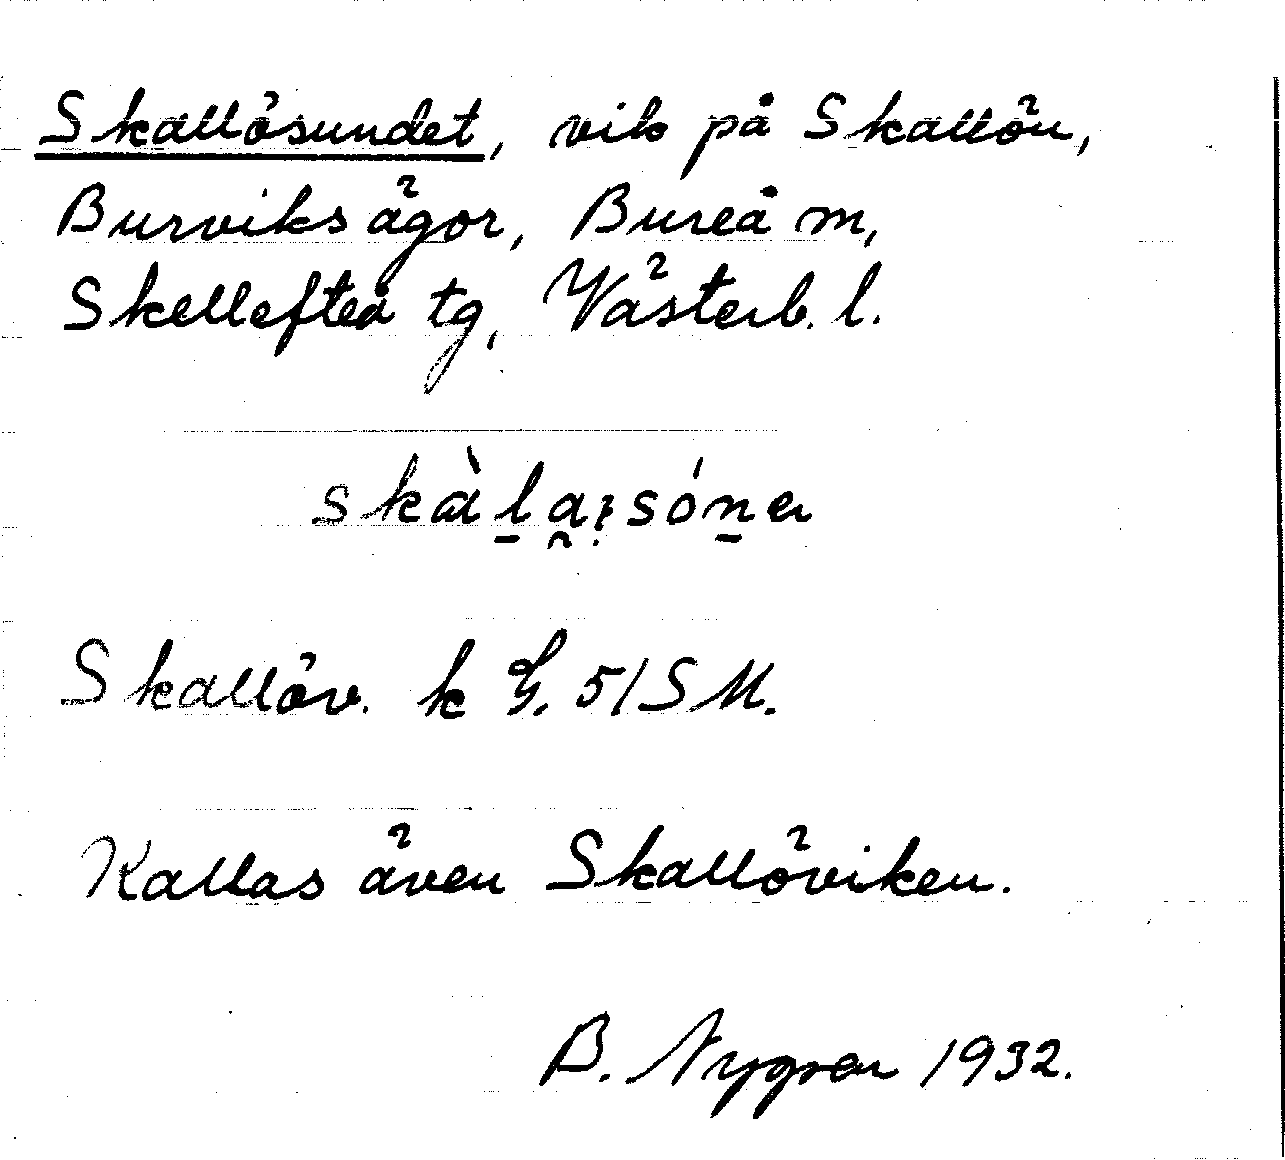 Skallösundet, vik på Skallön,
Burviks ägor, Bureå m,
Skellefteå tg, Västerb. l.
skàl̠a̯ꜟsón̠a
Skallöv. k G. 51 S M.
Kallas även Skallöviken.
B. Nygren 1932.